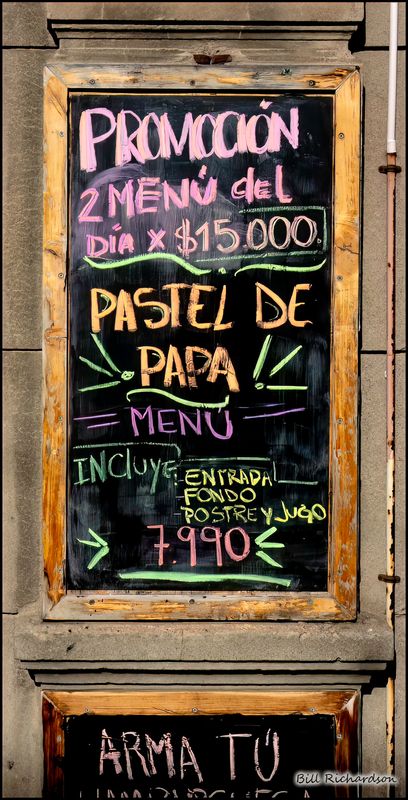 PROMOCCIÓN
2 MENÚ del
DÍA X $15.000.
PASTEL DE
PAPA
MENÚ
INCLUYE:
ENTRADA
FONDO
POSTRE Y JUGO
7.990
ARMA TÚ
Bill Richardson